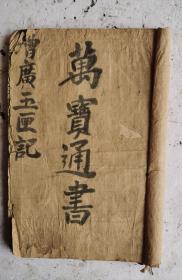 萬寶通書
增廣玉匣記